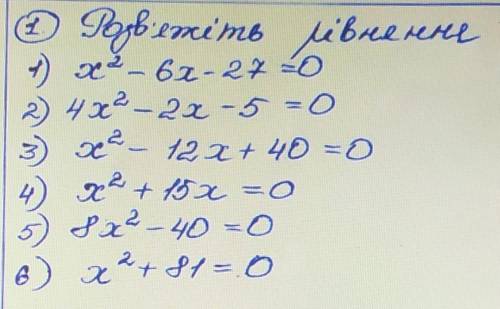 1. Розв'яжіть рівняння
1) x² - 6x - 27 = 0
2) 4x² - 2x - 5 = 0
3) x² - 12x + 40 = 0
4) x² + 15x = 0
5) 8x² - 40 = 0
6) x² + 81 = 0